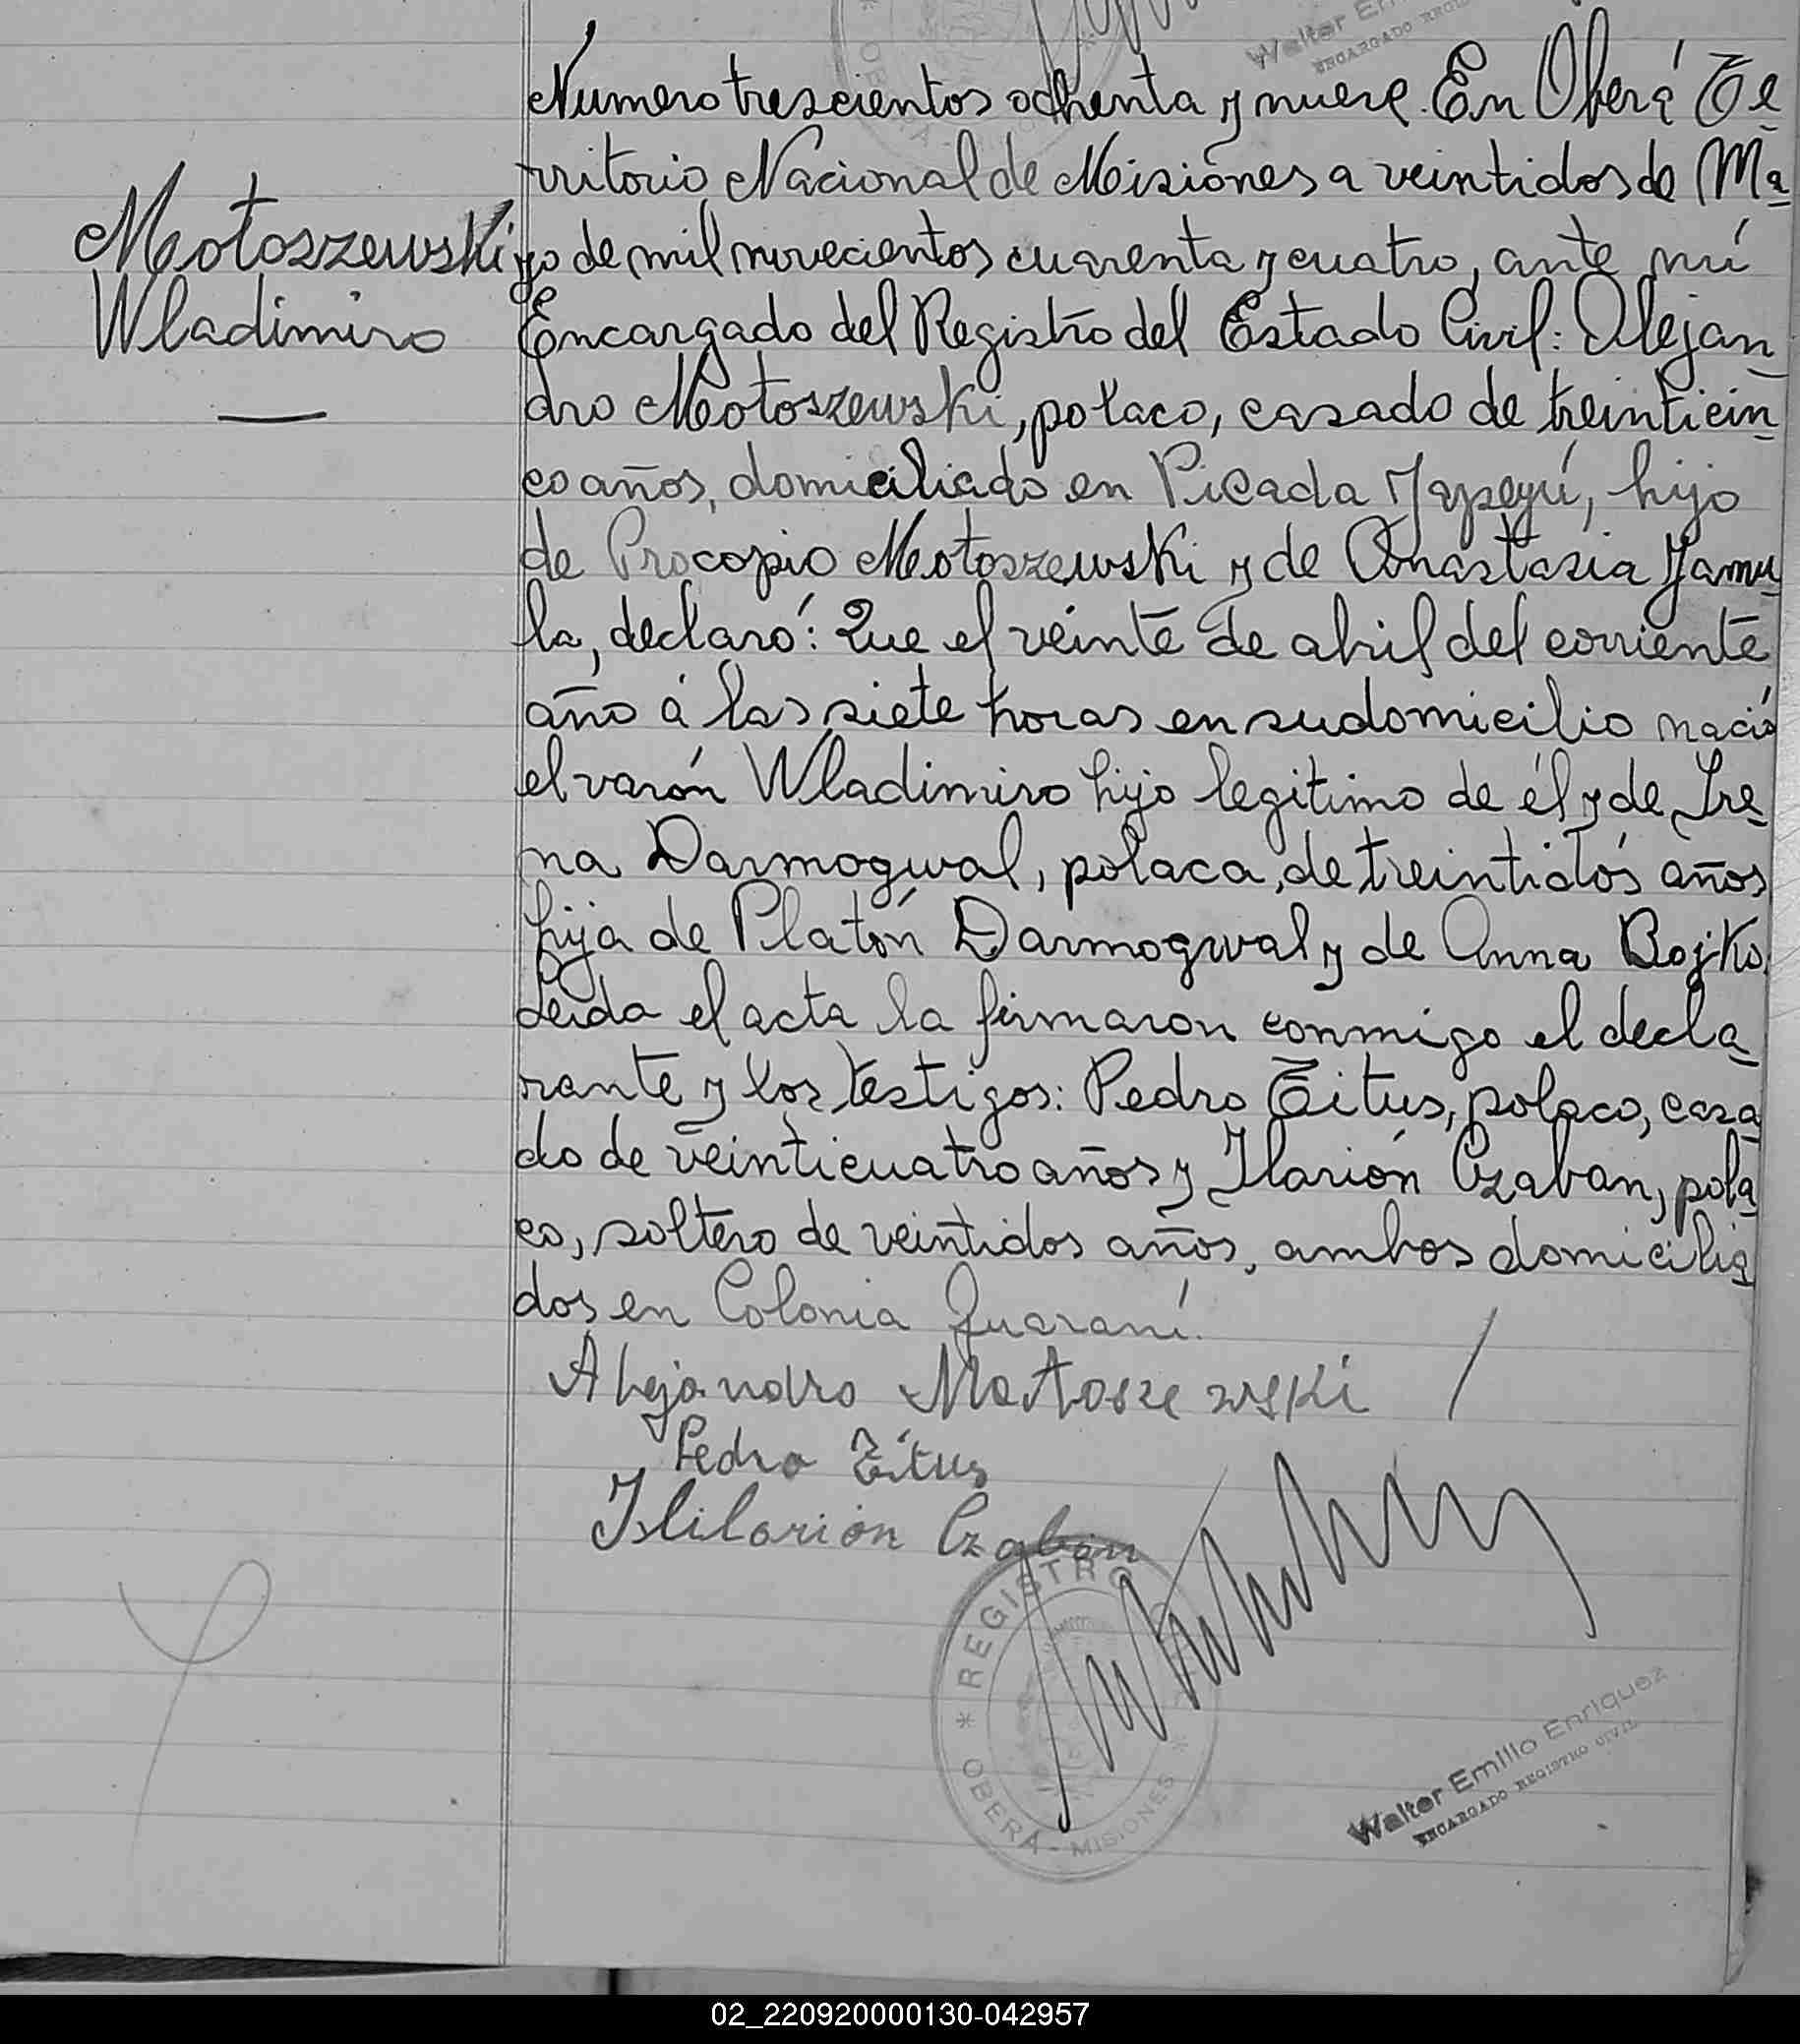 Walter
ENCARGADO
Numero trescientos ochenta y nueve. En Oberá Te
rritorio Nacional de Misiones a veintidos de Ma
Motoszewski
yo de mil novecientos cuarenta y cuatro, ante mí
Wladimiro
Encargado del Registro del Estado Civil: Alejan
dro Motoszewski, polaco, casado de treinticin
co años, domiciliado en Picada Yapeyú, hijo
de Procopio Motoszewski y de Anastasia Jamu
la, declaró: Que el veinte de abril del corriente
año á las siete horas en su domicilio nació
el varón Wladimiro hijo legitimo de él y de Ire
na Darmogwal, polaca, de treintidós años
hija de Platón Darmogwal y de Anna Bojko.
Leida el acta la firmaron conmigo el decla
rante y los testigos: Pedro Titus, polaco, casa
do de veinticuatro años y Ilarión Czaban, pola
co, soltero de veintidos años, ambos domicilia
dos en Colonia Guaraní.
Alejandro Motoszewski
Pedro Titus
Hilarion Czaban
REGISTRO
OBERÁ - MISIONES
Walter Emilio Enriquez
ENCARGADO REGISTRO CIVIL
02_220920000130-042957